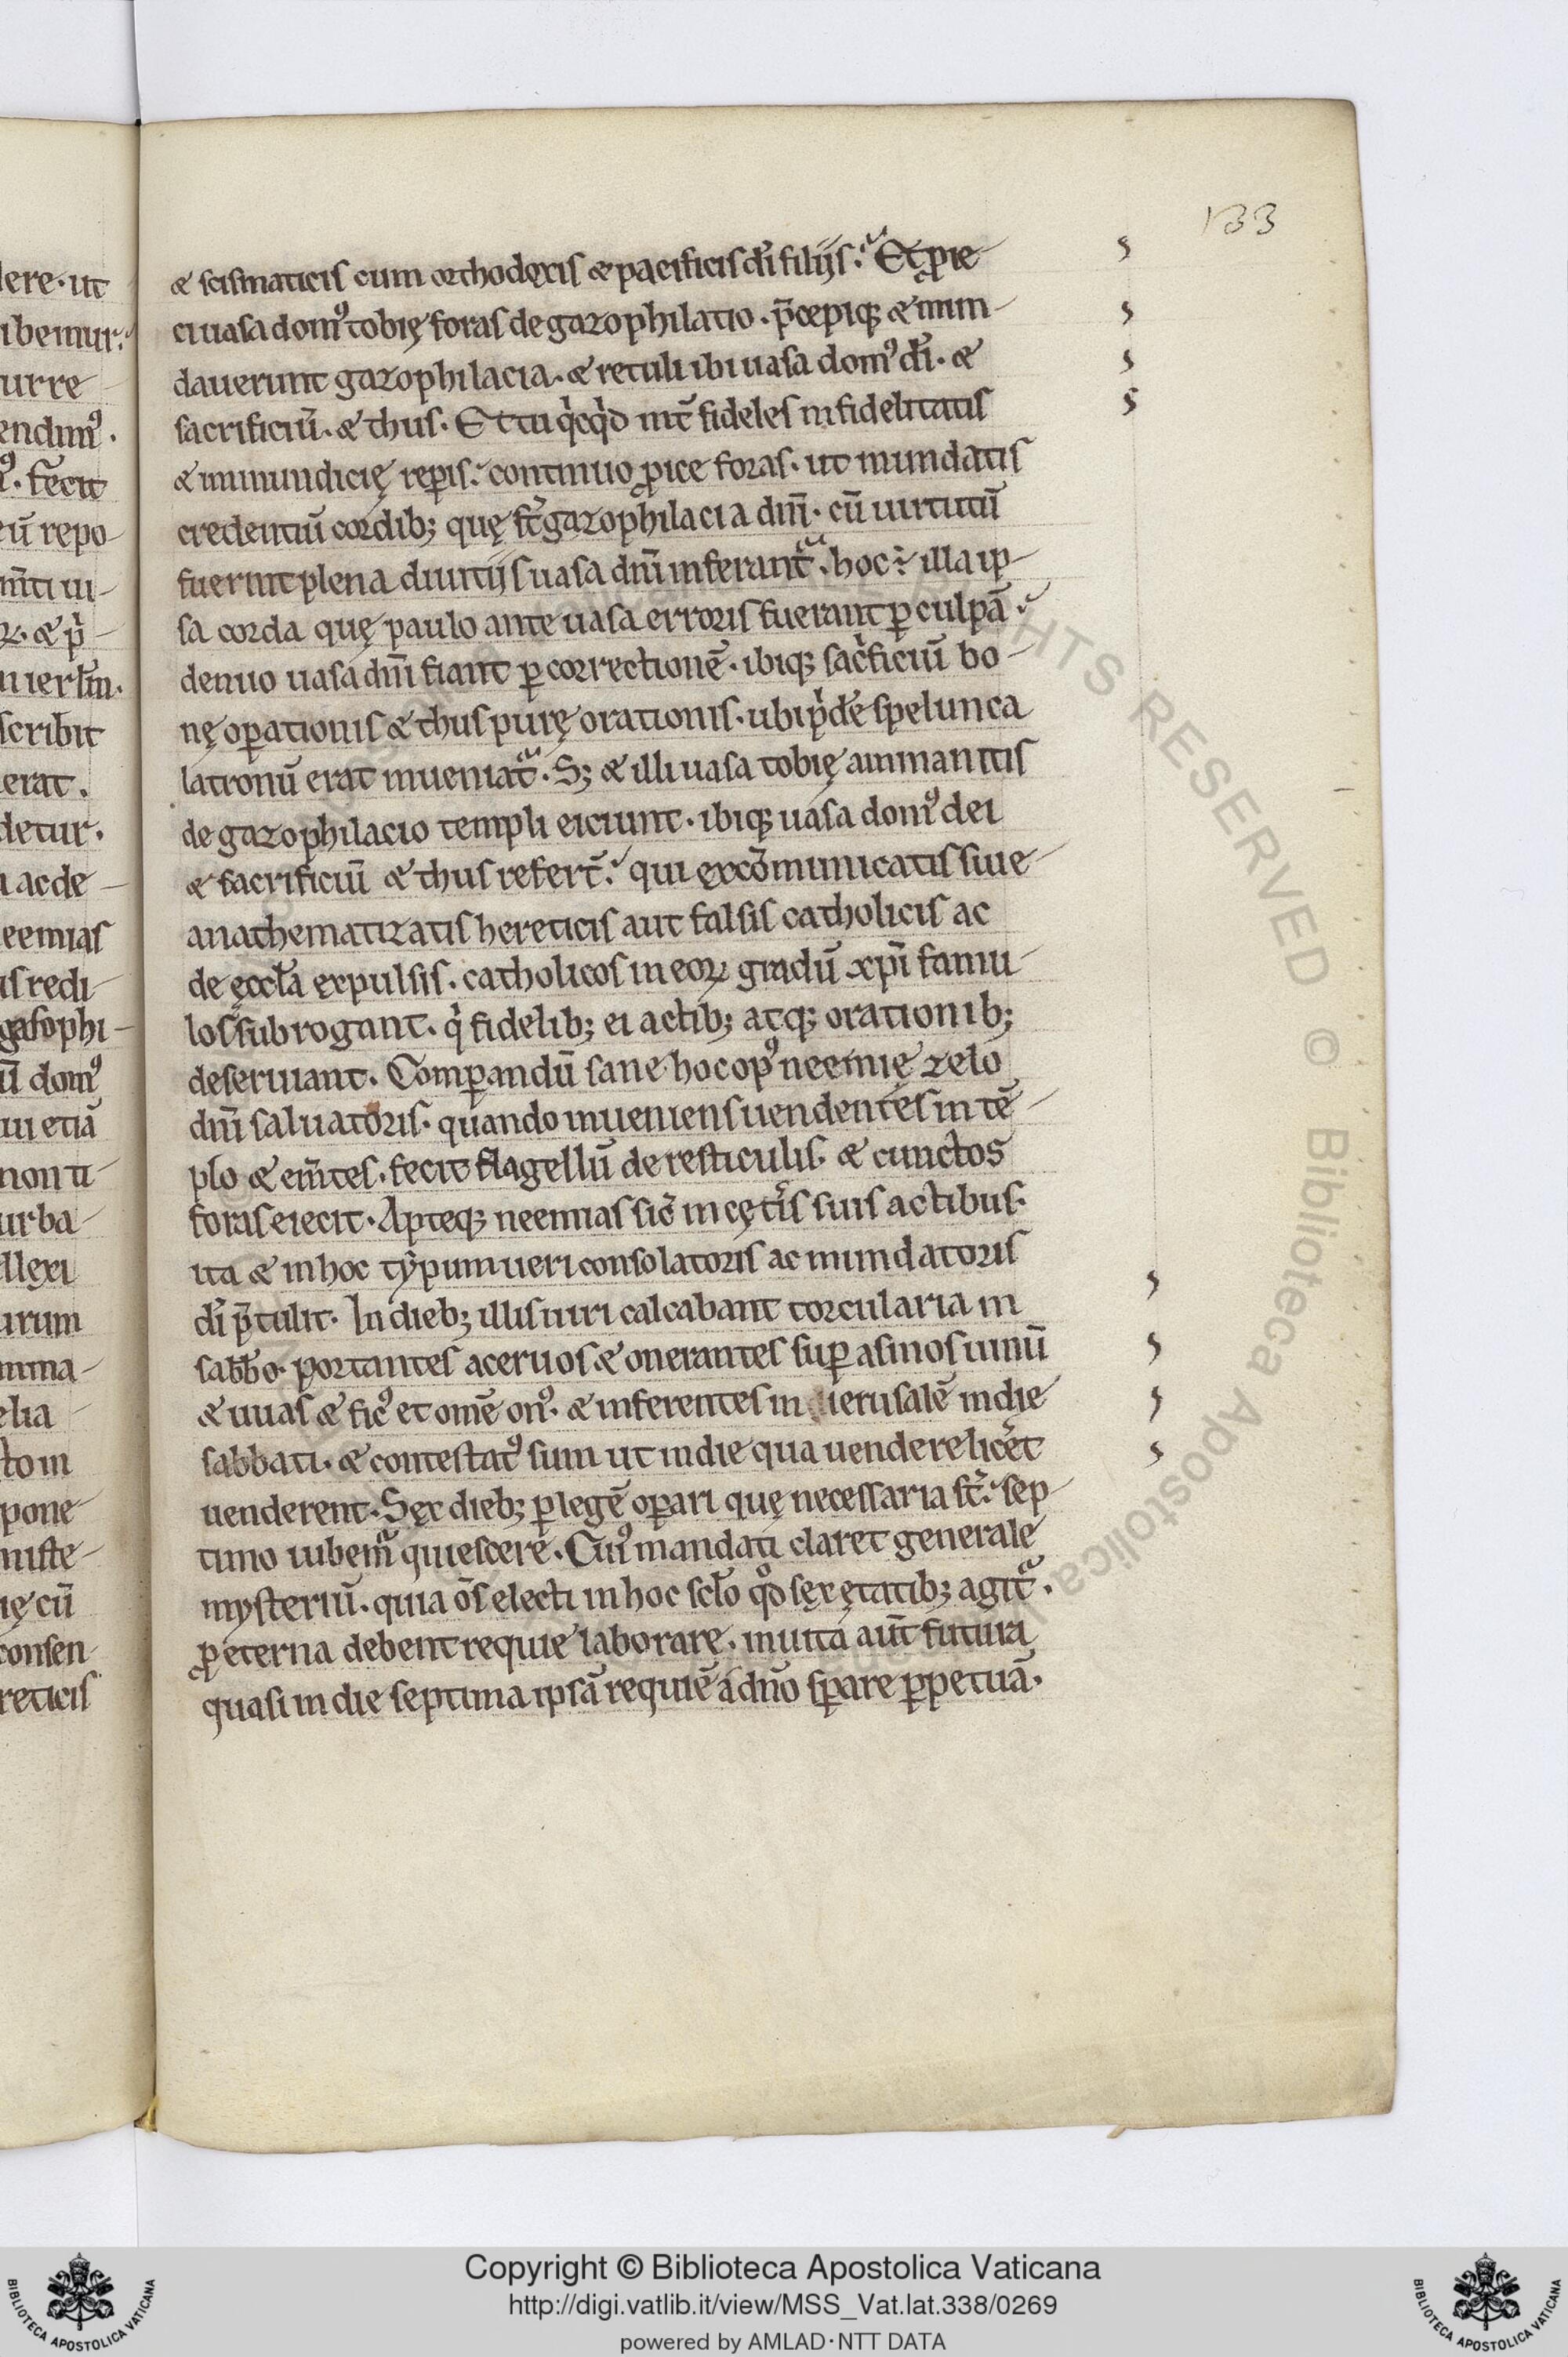 133
& scismaticis cum orthodoxis & pacificis dı̄ filijs. Et ꝓie-
ci uasa domꝰ tobię foras de gazophilatio. p̄cepiq; & mun-
dauerunt gazophilacia. & retuli ibi uasa domꝰ dı̄. &
sacrificiū. & thus. Et tu qͥcqͥd int̄ fideles infidelitatis
& inmundicię rep̲is. continuo ꝓice foras. ut mundatis
credentiū cordib; quę s̄t gazophilacia dnı̄. cū uirtutū
fuerint plena diuitijs uasa dnı̄ inferant᷑. hoc ÷ illa ip-
sa corda quę paulo ante uasa erroris fuerant ꝑ culpā.
denuo uasa dnı̄ fiant ꝑ correctionē. ibiq; sacͥficiū bo-
nę oꝑationis & thus purę orationis. ubi pͥdē spelunca
latronū erat inueniat᷑. S; & illi uasa tobię ammanitis
de gazophilacio templi eiciunt. ibiq; uasa domꝰ dei
& sacrificiū & thus refer̄t. qui excōmunicatis siue
anathematizatis hereticis aut falsis catholicis ac
de ęccl̄a expulsis. catholicos in eoꝝ gradū xp̄i famu-
los subrogant. qͥ fidelib; ei actib; atq; orationib;
deseruiant. Comꝑandū sane hoc opꝰ neemię zelo
dnı̄ saluatoris. quando inueniens uendentes in tē-
plo & em̄tes. fecit flagellū de resticulis. & cunctos
foras eiecit. Apteq; neemias sic̄ in cęt̄is suis actibus.
ita & in hoc typum ueri consolatoris ac mundatoris
dı̄ p̄tulit. In dieb; illis uiri calcabant torcularia in
sabb̄o. portantes aceruos & onerantes suꝑ asinos uinū
& uuas & ficꝰ et omē onꝰ. & inferentes in ierusalē in die
sabbati. & contestatꝰ sum ut in die qua uendere licer̄et
uenderent. Sex dieb; ꝑ legē oꝑari quę necessaria s̄t. sep-
timo iubem᷑ quiescere. Cuiꝰ mandati claret generale
mysteriū. quia ōs electi in hoc scl̄o qͦd sęx ętatib; agit᷑.
ꝓ eterna debent requie laborare. in uita aūt futura
quasi in die septima ipsā requiē a dnō sꝑare ꝑpetuā.
lere. ut
ibemur.
urre
endimꝰ.
fecit
eū repo
n̄ti ui-
ꝝ. & pͥ-
n ierl̄m.
scribit
erat.
detur.
ac de
eemias
is redi-
gasophi-
ū domꝰ
ui etiā
non ti-
urba-
llexi
urum
mma-
elia
to in
pone-
niste-
ię cū
consen
reticis
RIGHTS RESERVED © Biblioteca Apostolica Vaticana
Copyright © Biblioteca Apostolica Vaticana
http://digi.vatlib.it/view/MSS_Vat.lat.338/0269
powered by AMLAD·NTT DATA
BIBLIOTECA APOSTOLICA VATICANA
BIBLIOTECA APOSTOLICA VATICANA